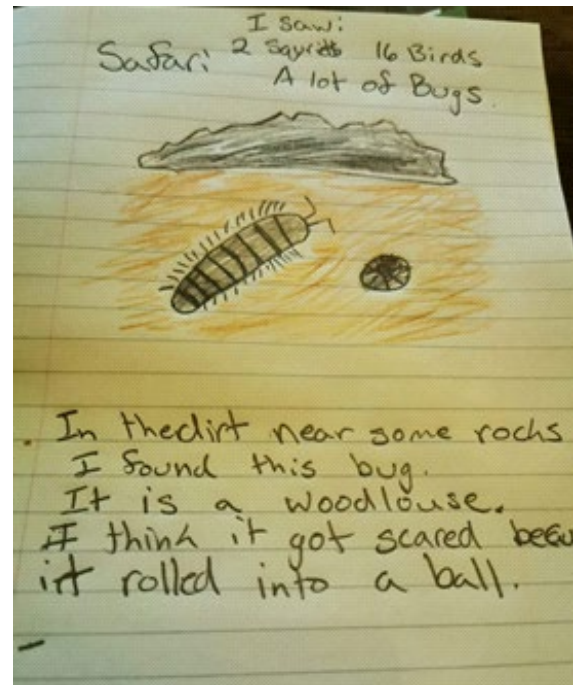 I saw:
Safari 2 16 Birds
A lot of Bugs.
In the dirt near some rocks
I found this bug.
It is a woodlouse.
I think it got scared
it rolled into a ball.